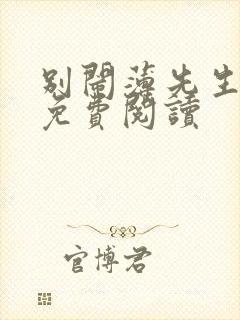 別鬧薄先生
免費閱讀
官博君